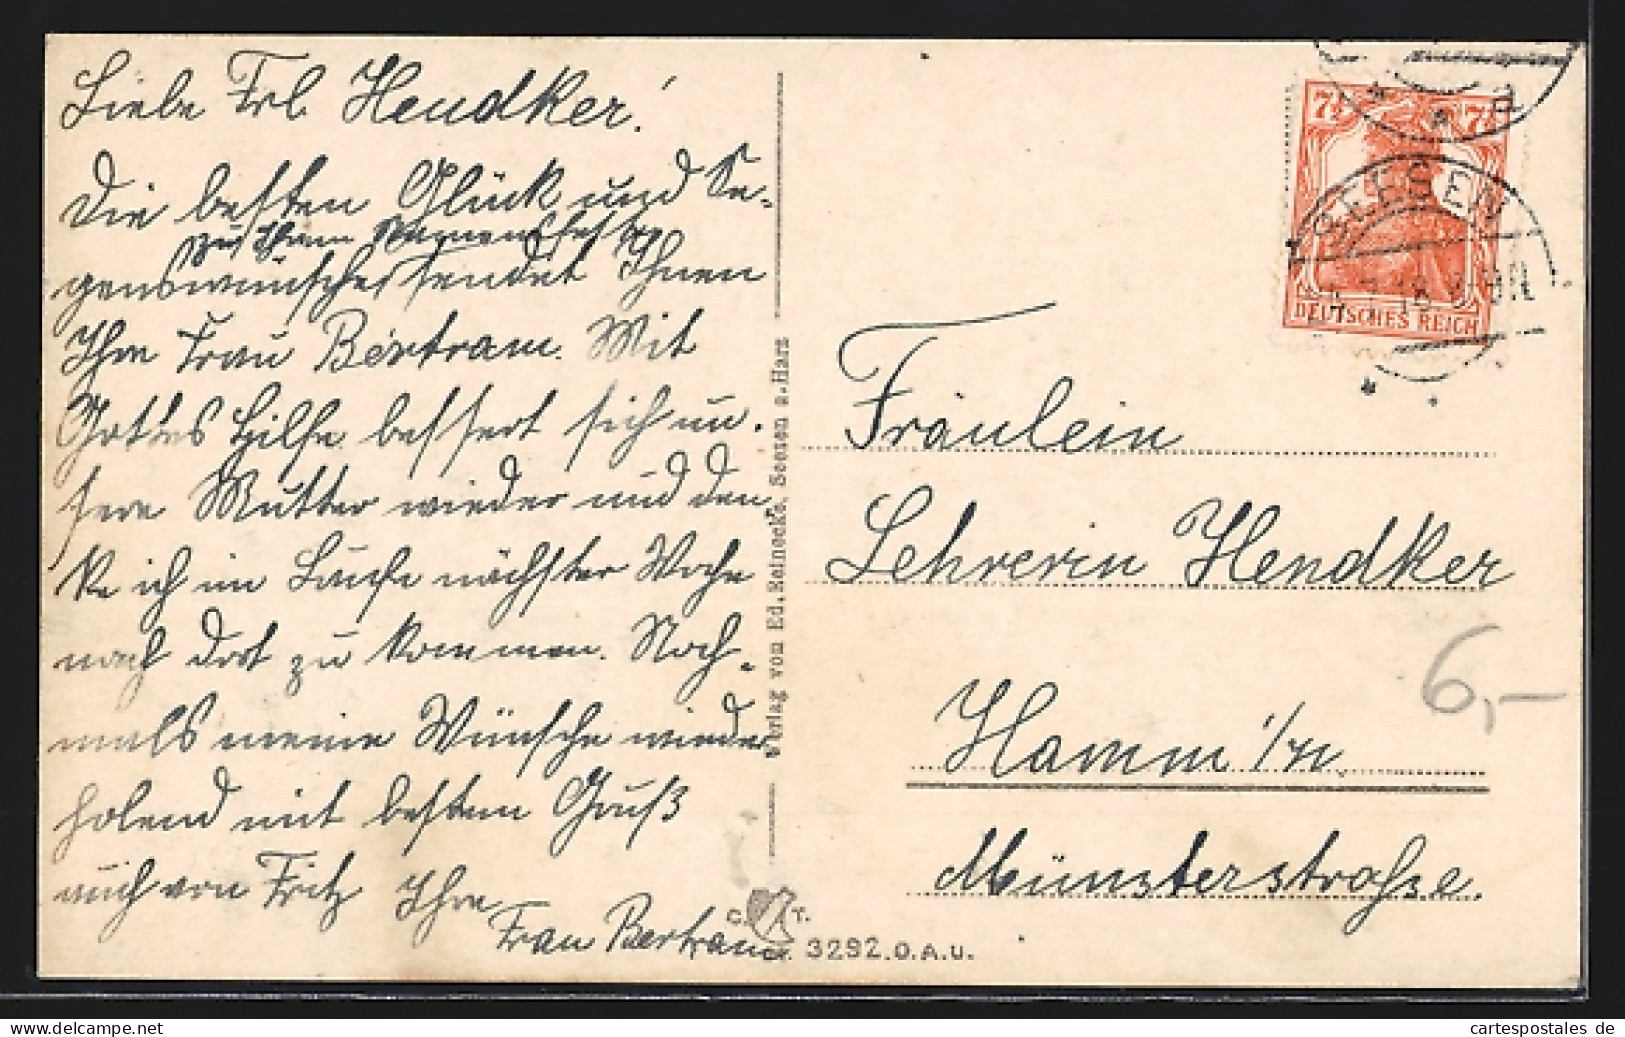 Liebe Frl. Hendker!
Die besten Glück und Se-
zu Ihrem Namensfeste
genswünsche sendet Ihnen
Ihre Frau Bertram. Mit
Gottes Hilfe bessert sich un-
sere Mutter wieder und den-
ke ich im Laufe nächster Woche
nach dort zu kommen. Noch-
mals meine Wünsche wieder
holend mit bestem Gruß
auch von Fritz Ihre
Frau Bertram
Verlag von Ed. Reinecke, Seesen a. Harz
C. T.
3292.O.A.U.
7½ 7½
DEUTSCHES REICH
SEESEN
Fräulein
Lehrerin Hendker
Hamm i/W.
Münsterstraße.
6,-
hpm-sammelalbum
cartespostales de